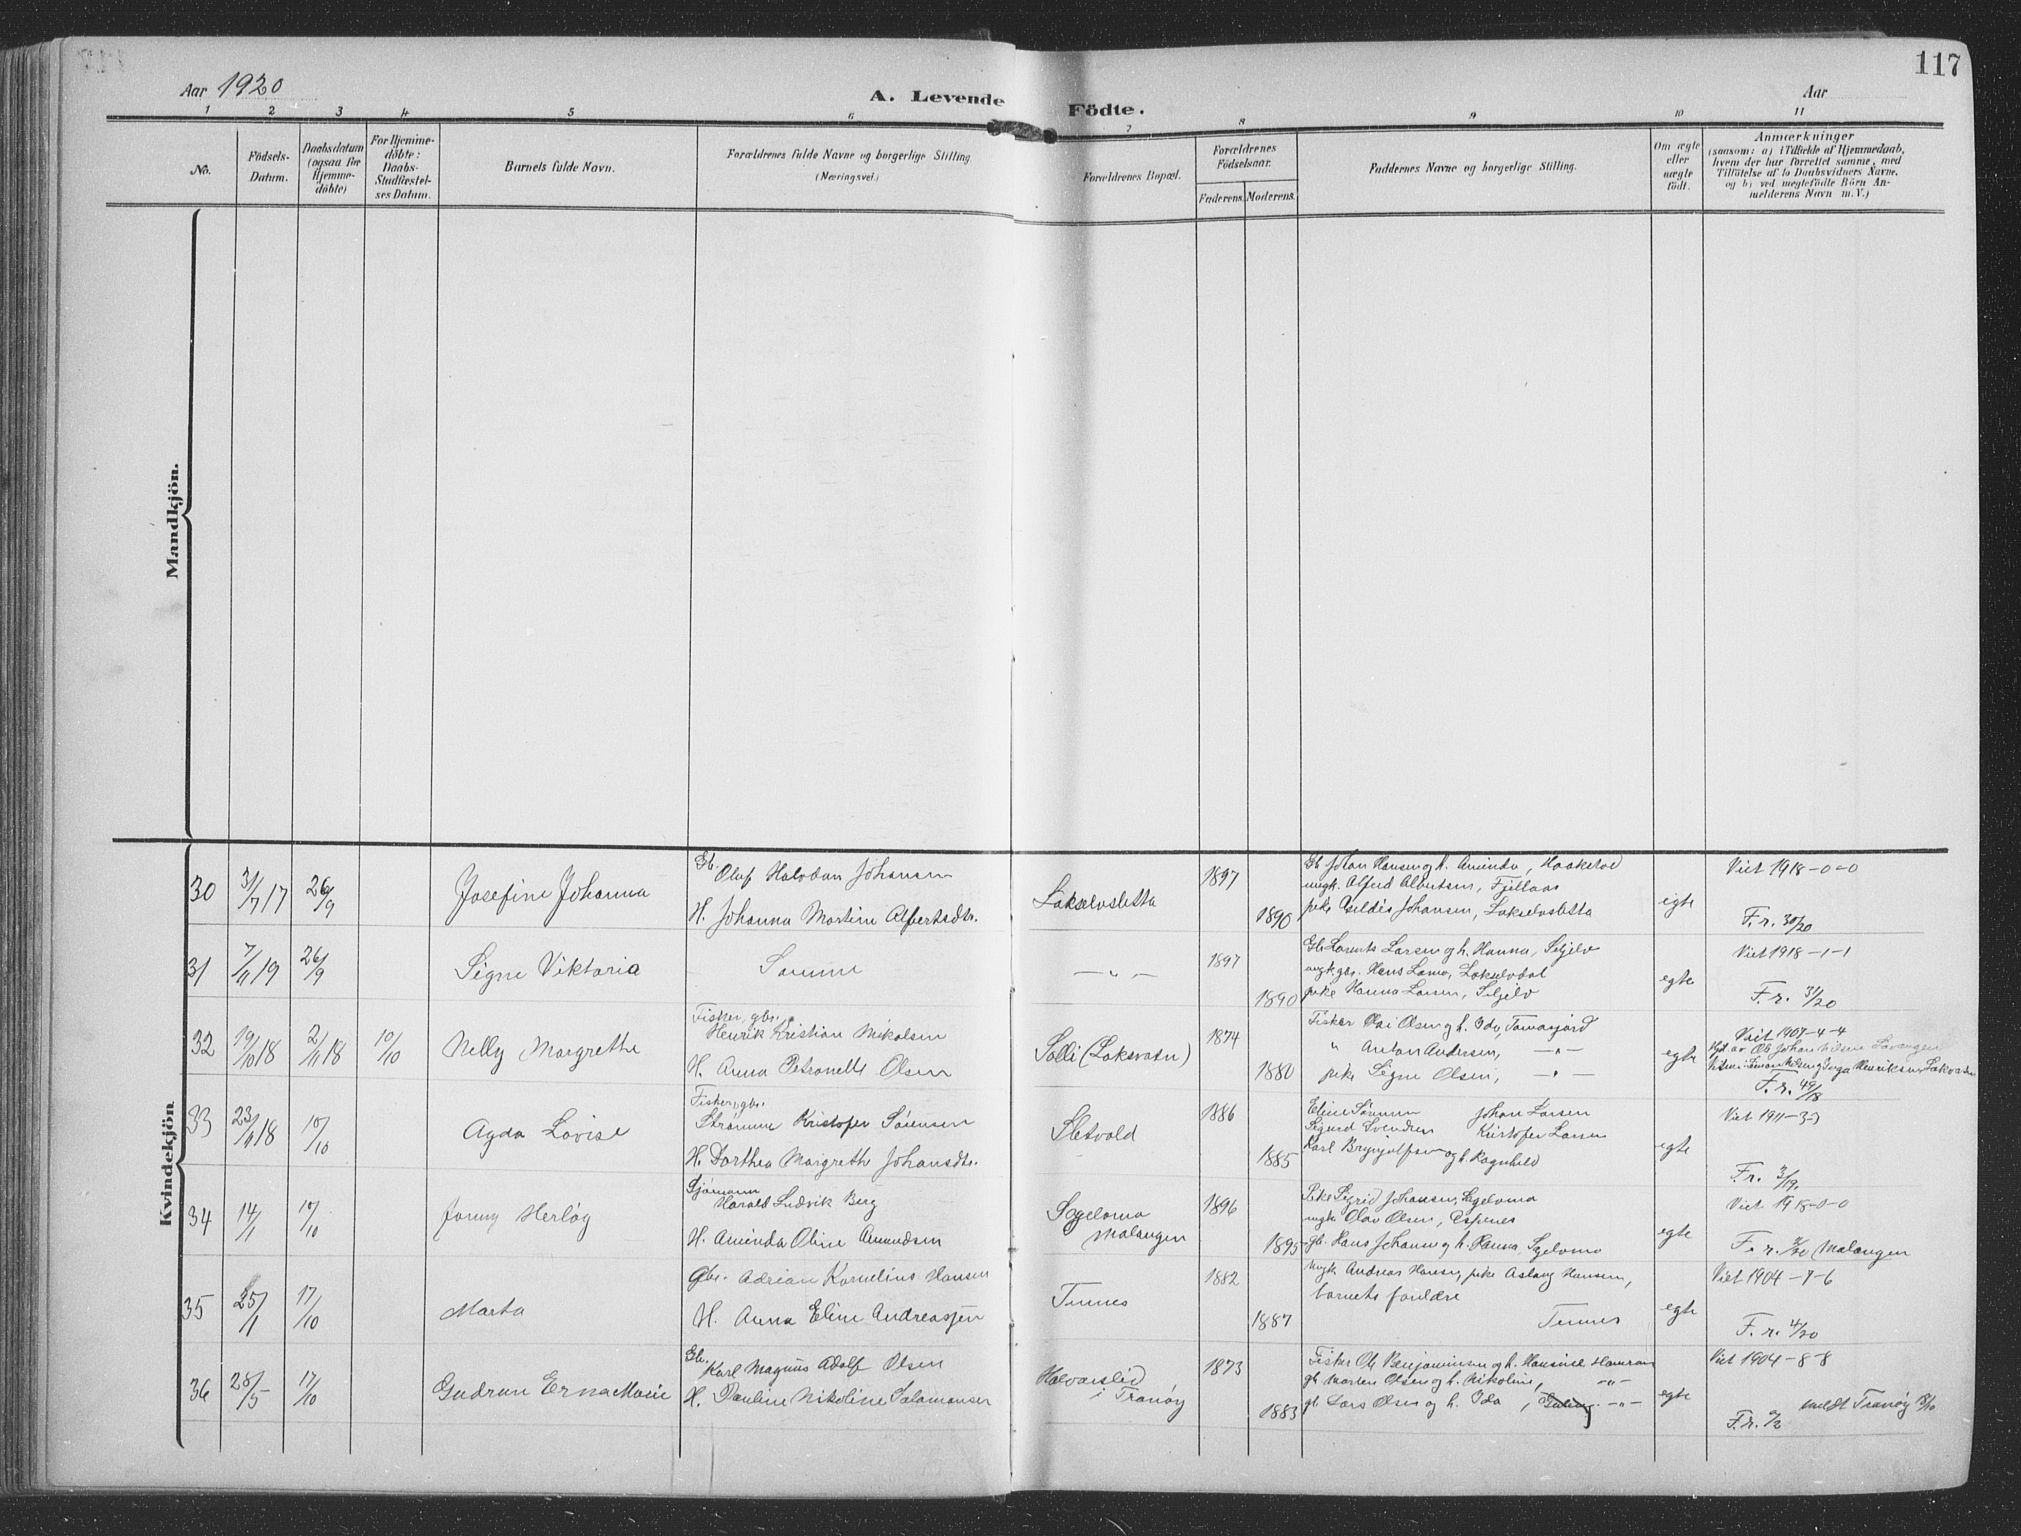 117
Aar 1920
A. Levende Födte.
Aar
1 2 3 4 5 6 7 8 9 10 11
No.
Födsels-
Datum.
Daabsdatum
(ogsaa for
Hjemme-
döbte)
For Hjemme-
döbte:
Daabs-
Stadfæstel-
ses Datum.
Barnets fulde Navn.
Forældrenes fulde Navne og borgerlige Stilling
(Næringsvei.)
Forældrenes Bopæl.
Forældrenes
Födselsaar.
Faderens. Moderens.
Faddernes Navne og borgerlige Stilling.
Om ægte
eller
uægte
födt.
Anmærkninger
(saasom: a) i Tilfælde af Hjemmedaab,
hvem der har forrettet samme, med
Tilföielse af to Daabsvidners Navne,
og b) ved uegtefödte Börn An-
melderens Navn m. V.)
Mandkjön.
Kvindekjön
30 31/7 17 26/9 Josefine Johanna
Gb. Oluf Halvdan Johansen
H. Johanna Martine Albertsdtr.
Lakselvsletta
1897
1890
Gb Johan Hansen og h. Aminda, Haakstad
ungk. Alfred Albertsen, Fjellaas
pike Johansen, Lakselvsletta
egte
Viet 1918-0-0
F. r. 30/20
31 7/11 19 26/9 Signe Viktoria
Samme
— „ —
1897
1890
Gb. Larsen og h. Hanna, Seljelv
ungk. gbr. Hans Lamo, Lakselvdal
pike Hanna Larsen, Seljelv
egte
Viet 1918-1-1
F. r. 31/20
32 19/10 18 2/11 18 10/10 Nelly Margrethe
Fisker, gbr.
Henrik Kristian Nikolsen
H. Anna Petronelle Olsen
Solli (Laksvatn)
1874
1880
Fisker Olai Olsen og h. Ida, Tomasjord
" Anton Andersen, — „ —
pike Signe Olsen, — „ —
egte
Viet 1907-4-4
F. r. 49/18
33 23/11 18 10/10 Agda Lovise
Fisker, gbr.
Strømme Kristofer Sørensen
H. Dorthea Margreth Johansdtr.
Sletvold
1886
1885
Eline Johan Larsen
Sigurd Svendsen Kristofer Larsen
Karl Brynjulfsen og h. Ragnhild
egte
Viet 1911-3-3
F. r. 3/19.
34 14/1 17/10 Jonny Herløg
Sjømann
Harald Ludvik Berg
H. Aminda Oline Amundsen
Malangen
1896
1895
Pike Sigrid Johansen,
ungk. Olav Olsen, Espenes
gb. Hans Johansen og h. Hanna,
egte
Viet 1918-0-0
F. r. 2/20 Malangen
35 25/1 17/10 Marta
gbr. Adrian Kornelius Hansen
H. Anna Eline Andreassen
Tennes
1882
1887
ungk Andreas Hansen, pike Aslaug Hansen,
barnets foreldre
Tennes
egte
Viet 1904-7-6
F. r. 4/20
36 28/5 17/10 Gudrun Erna Marie
Gb.
Karl Magnus Adolf Olsen
H. Pauline Nikoline Salamonsen
Halvarslid
i Tranøy
1873
1883
Fisker Ole Benjaminsen og h. Hansine
gb Morten Olsen og h. Nikoline, — „ —
gb Lars Olsen og h. Ida, — „ —
egte
Viet 1904-8-8
meldt Tranøy
F. r.